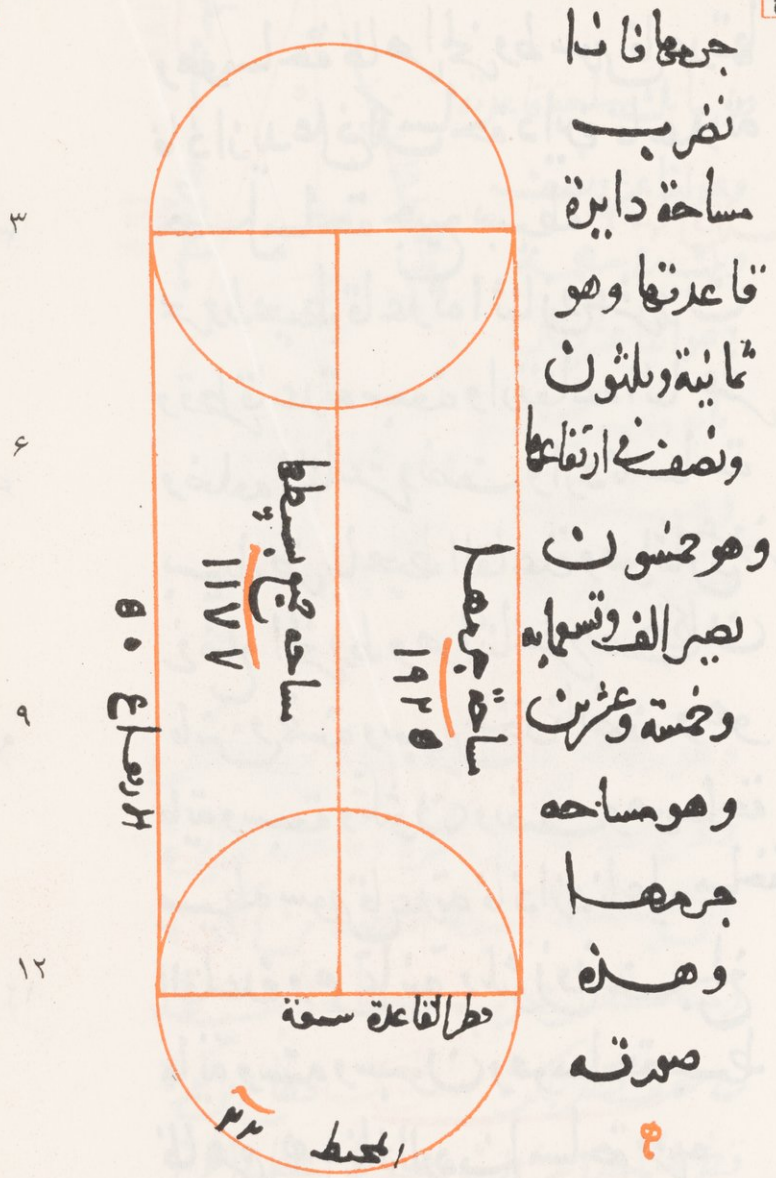 جرمها فانا
نضرب
مساحة دايرة
قاعدتها وهو
ثمانية وثلثون
ونصف في ارتفاعها
وهو خمسون
يصير الف وتسعمايه
وخمسة وعشرين
وهو مساحه
جرمها
وهذه
صورته
٣
۶
٩
١٢
مساحة جرمها
١٩٢٥
مساحه جميع بسيطها
١١٧٧
الارتفاع ٥٠
قطر القاعدة سبعة
المحيط ٢٢